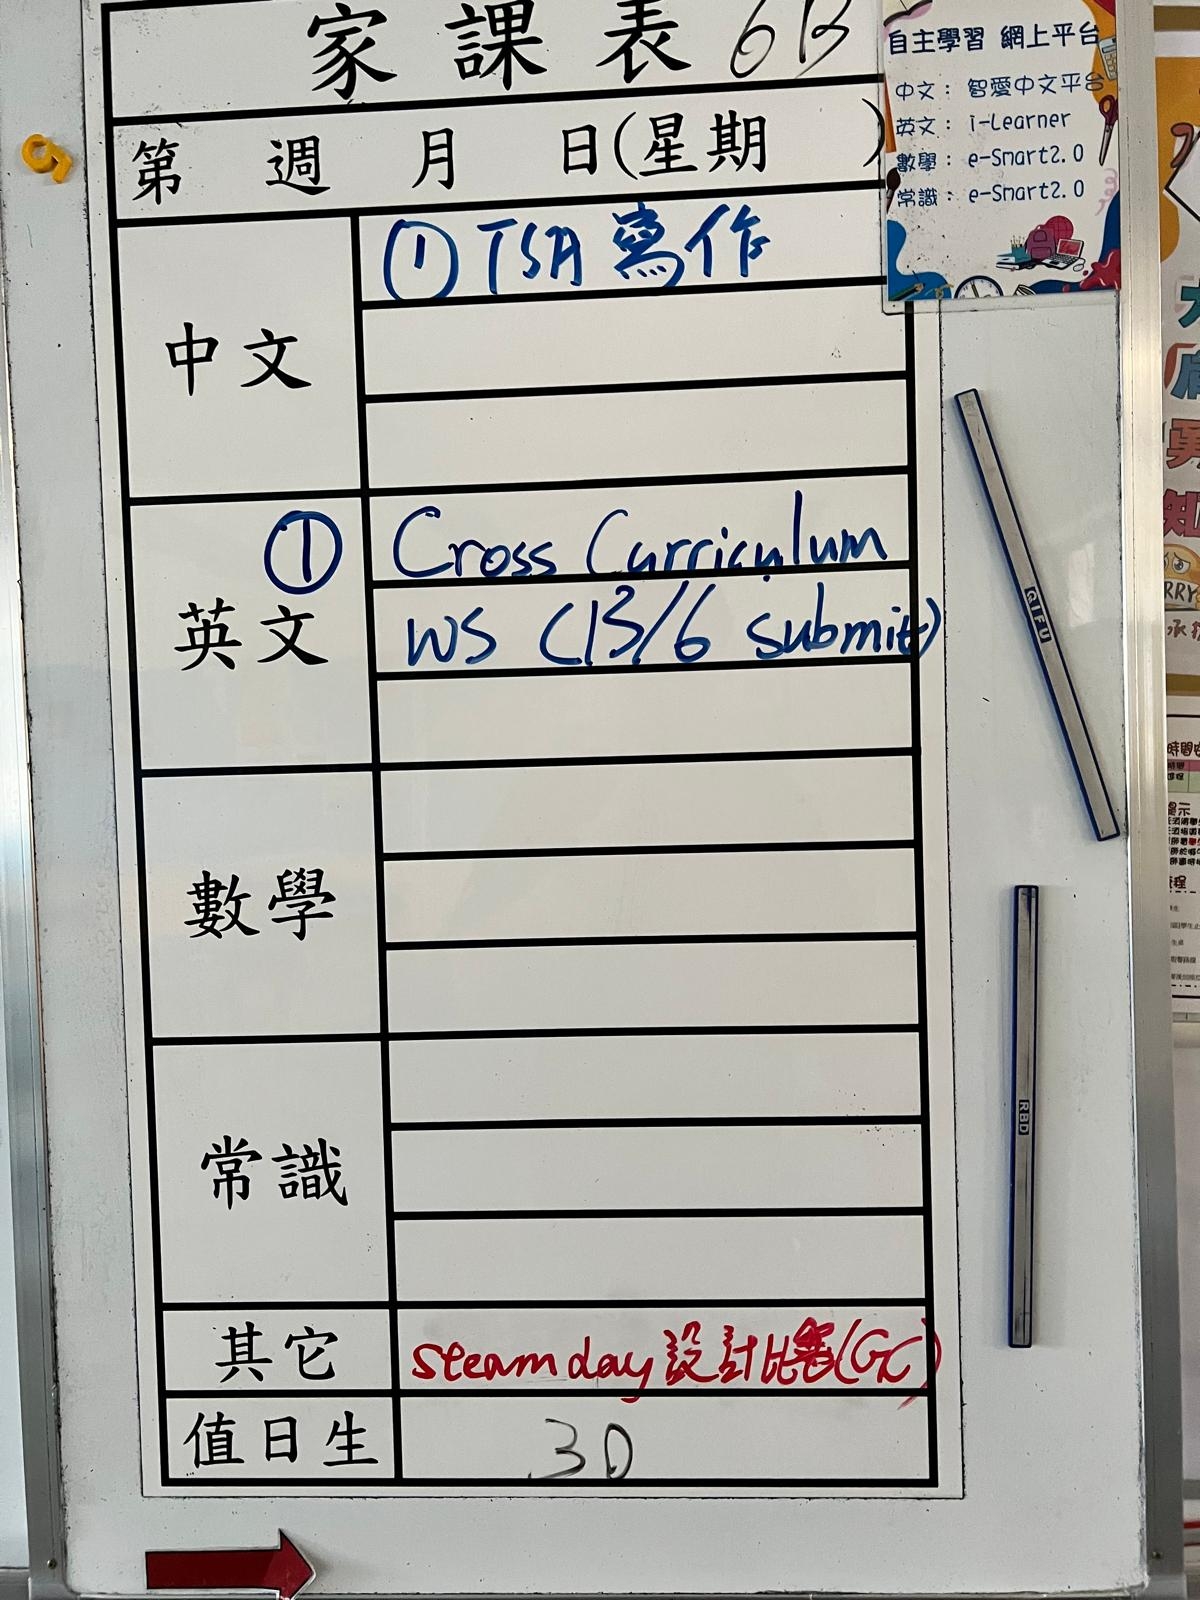 家課表 6B
第 週 月 日(星期 )
自主學習 網上平台
中文： 智愛中文平台
英文： i-Learner
數學： e-Smart2.0
常識： e-Smart2.0
中文
①TSA寫作
英文
① Cross Curriculum
WS (13/6 submit)
數學
常識
其它
steam day 設計比賽(GC)
值日生
30
QIFU
RBD